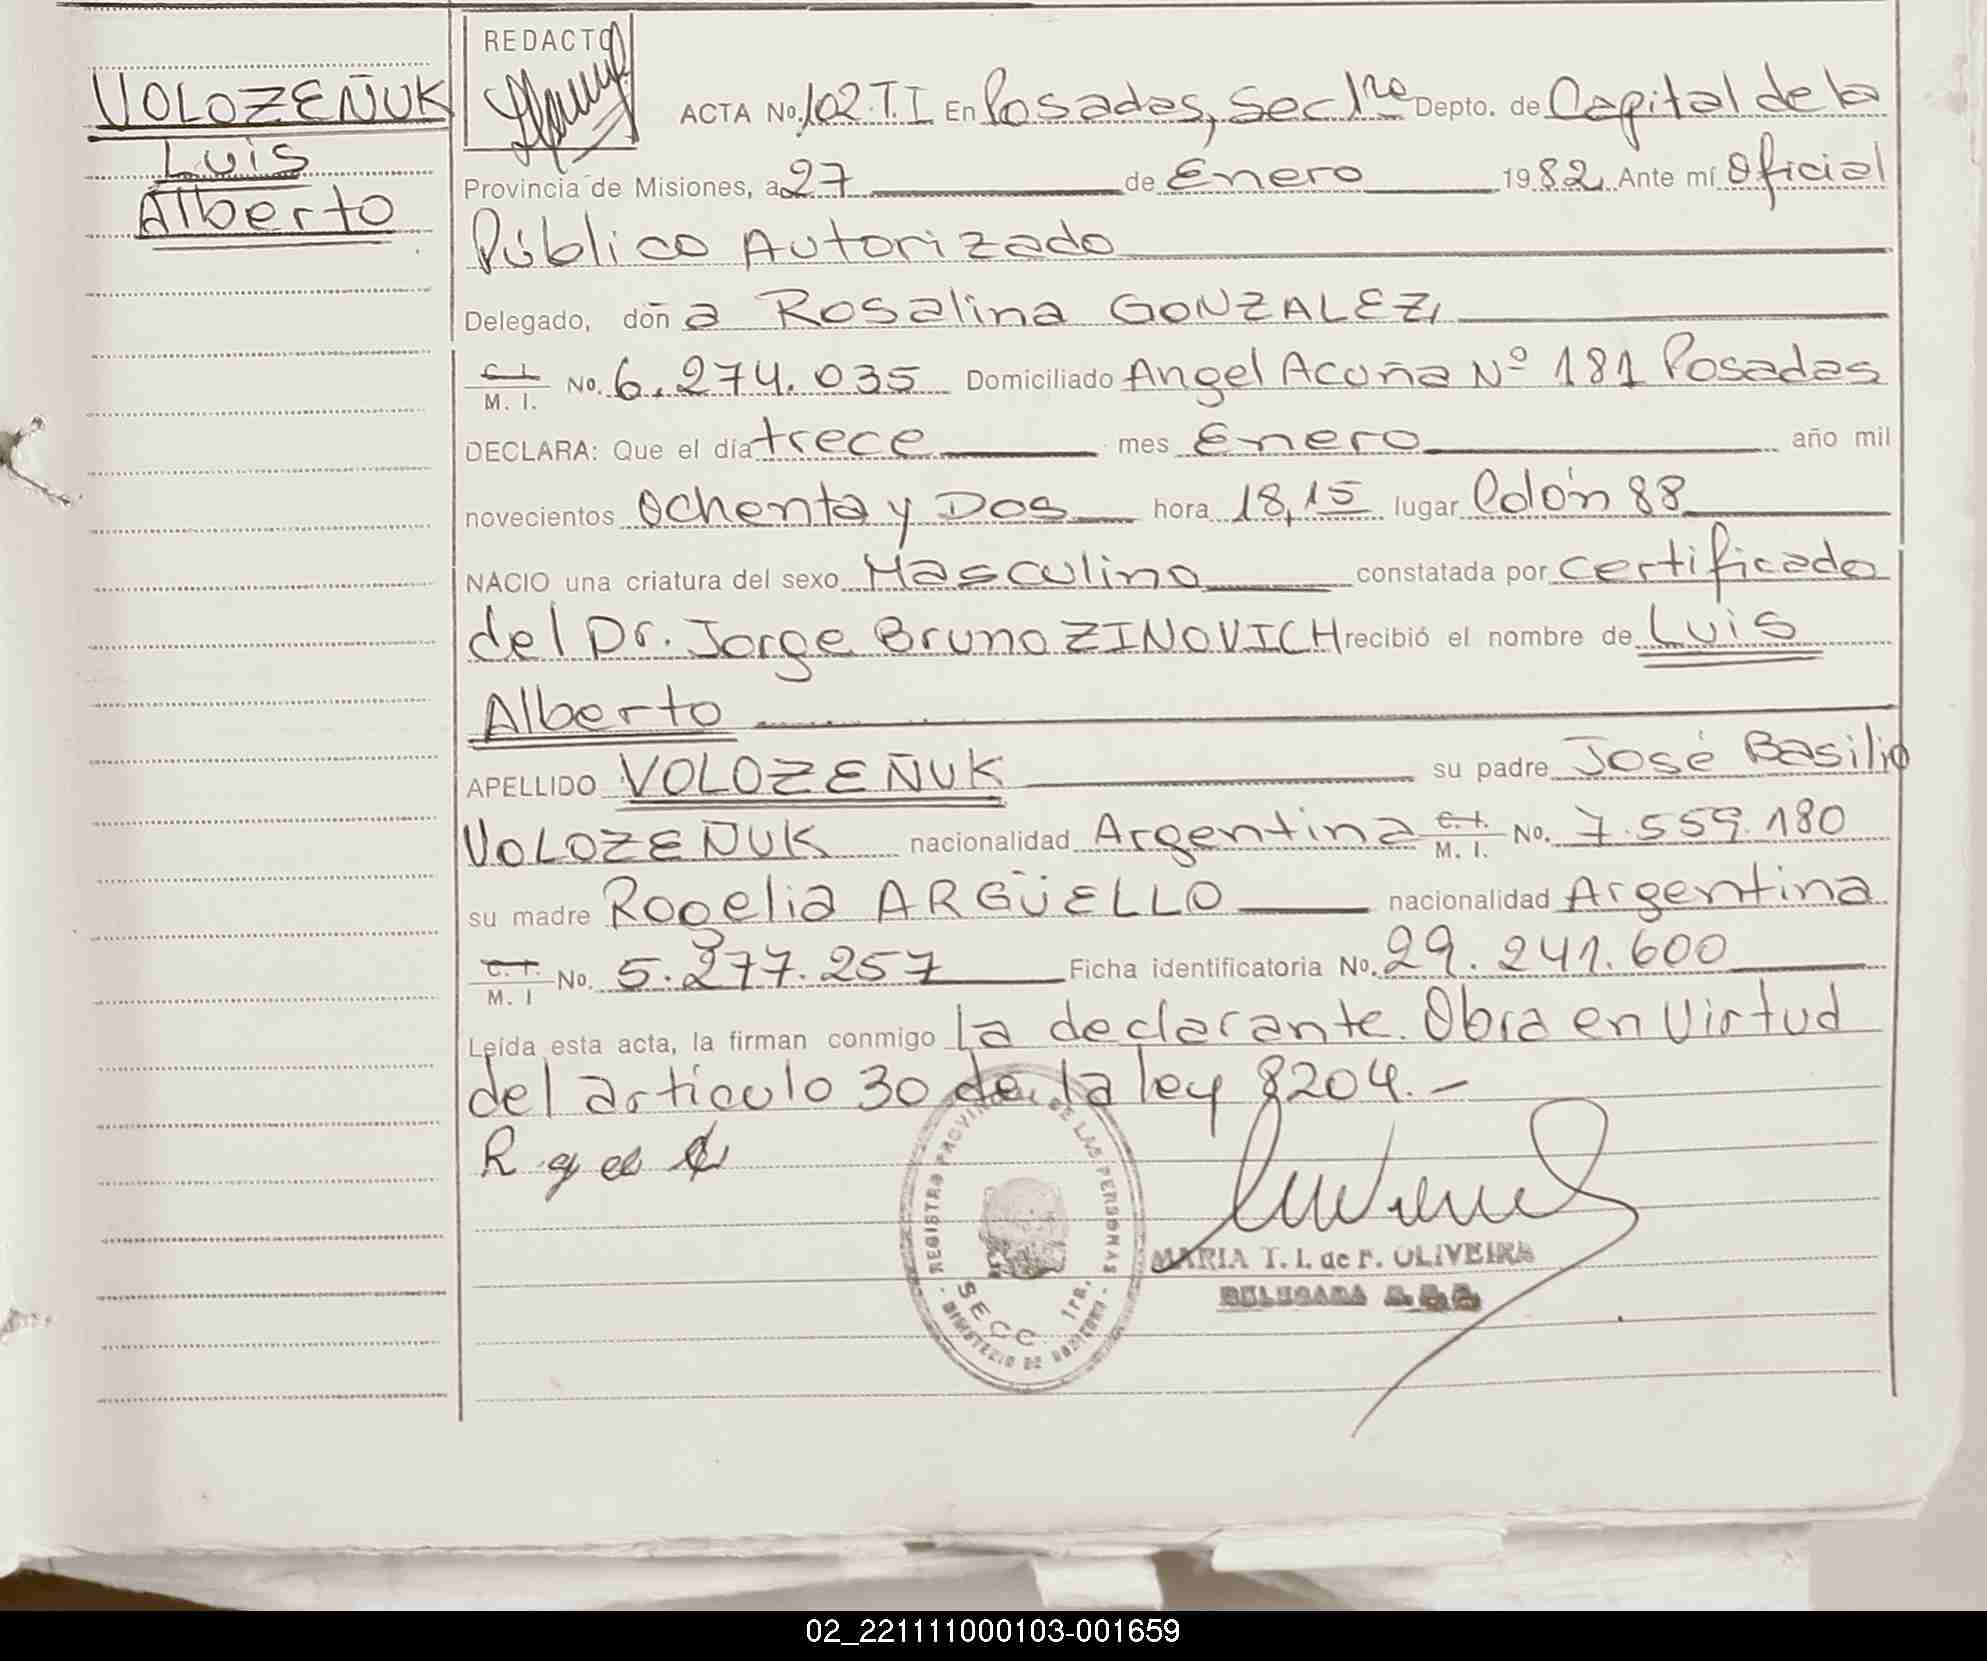 VOLOZEÑUK
Luis
Alberto
REDACTO
ACTA No. 102.T.I En Posadas, Sec 1ra Depto. de Capital de la
Provincia de Misiones, a 27 de Enero 1982. Ante mí Oficial
Público Autorizado
Delegado, doña Rosalina GONZALEZ,
C. I. M. I. No. 6.274.035 Domiciliado Angel Acuña Nº 181 Posadas
DECLARA: Que el día trece mes Enero año mil
novecientos Ochenta y Dos hora 18,15 lugar Colón 88
NACIO una criatura del sexo Masculino constatada por certificado
del Dr. Jorge Bruno ZINOVICH recibió el nombre de Luis
Alberto
APELLIDO VOLOZEÑUK su padre José Basilio
VOLOZEÑUK nacionalidad Argentina C. I. M. I. No. 7.559.180
su madre Rogelia ARGÜELLO nacionalidad Argentina
C. I. M. I No. 5.277.257 Ficha identificatoria No. 29.241.600
Leída esta acta, la firman conmigo la declarante. Obra en Virtud
del articulo 30 de la ley 8204.-
REGISTRO PROVINCIAL DE LAS PERSONAS
SECC. 1ra.
MINISTERIO DE GOBIERNO
MARIA T. I. de F. OLIVEIRA
DELEGADA
02_221111000103-001659